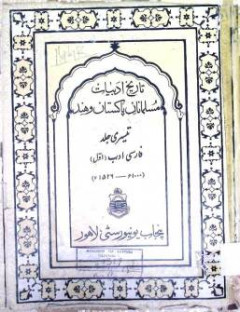 تاریخ ادبیات
مسلمانان پاکستان و ہند
تیسری جلد
فارسی ادب (اوّل)
(۱۰۰۰ء — ۱۵۲۶ء)
پنجاب یونیورسٹی لاہور